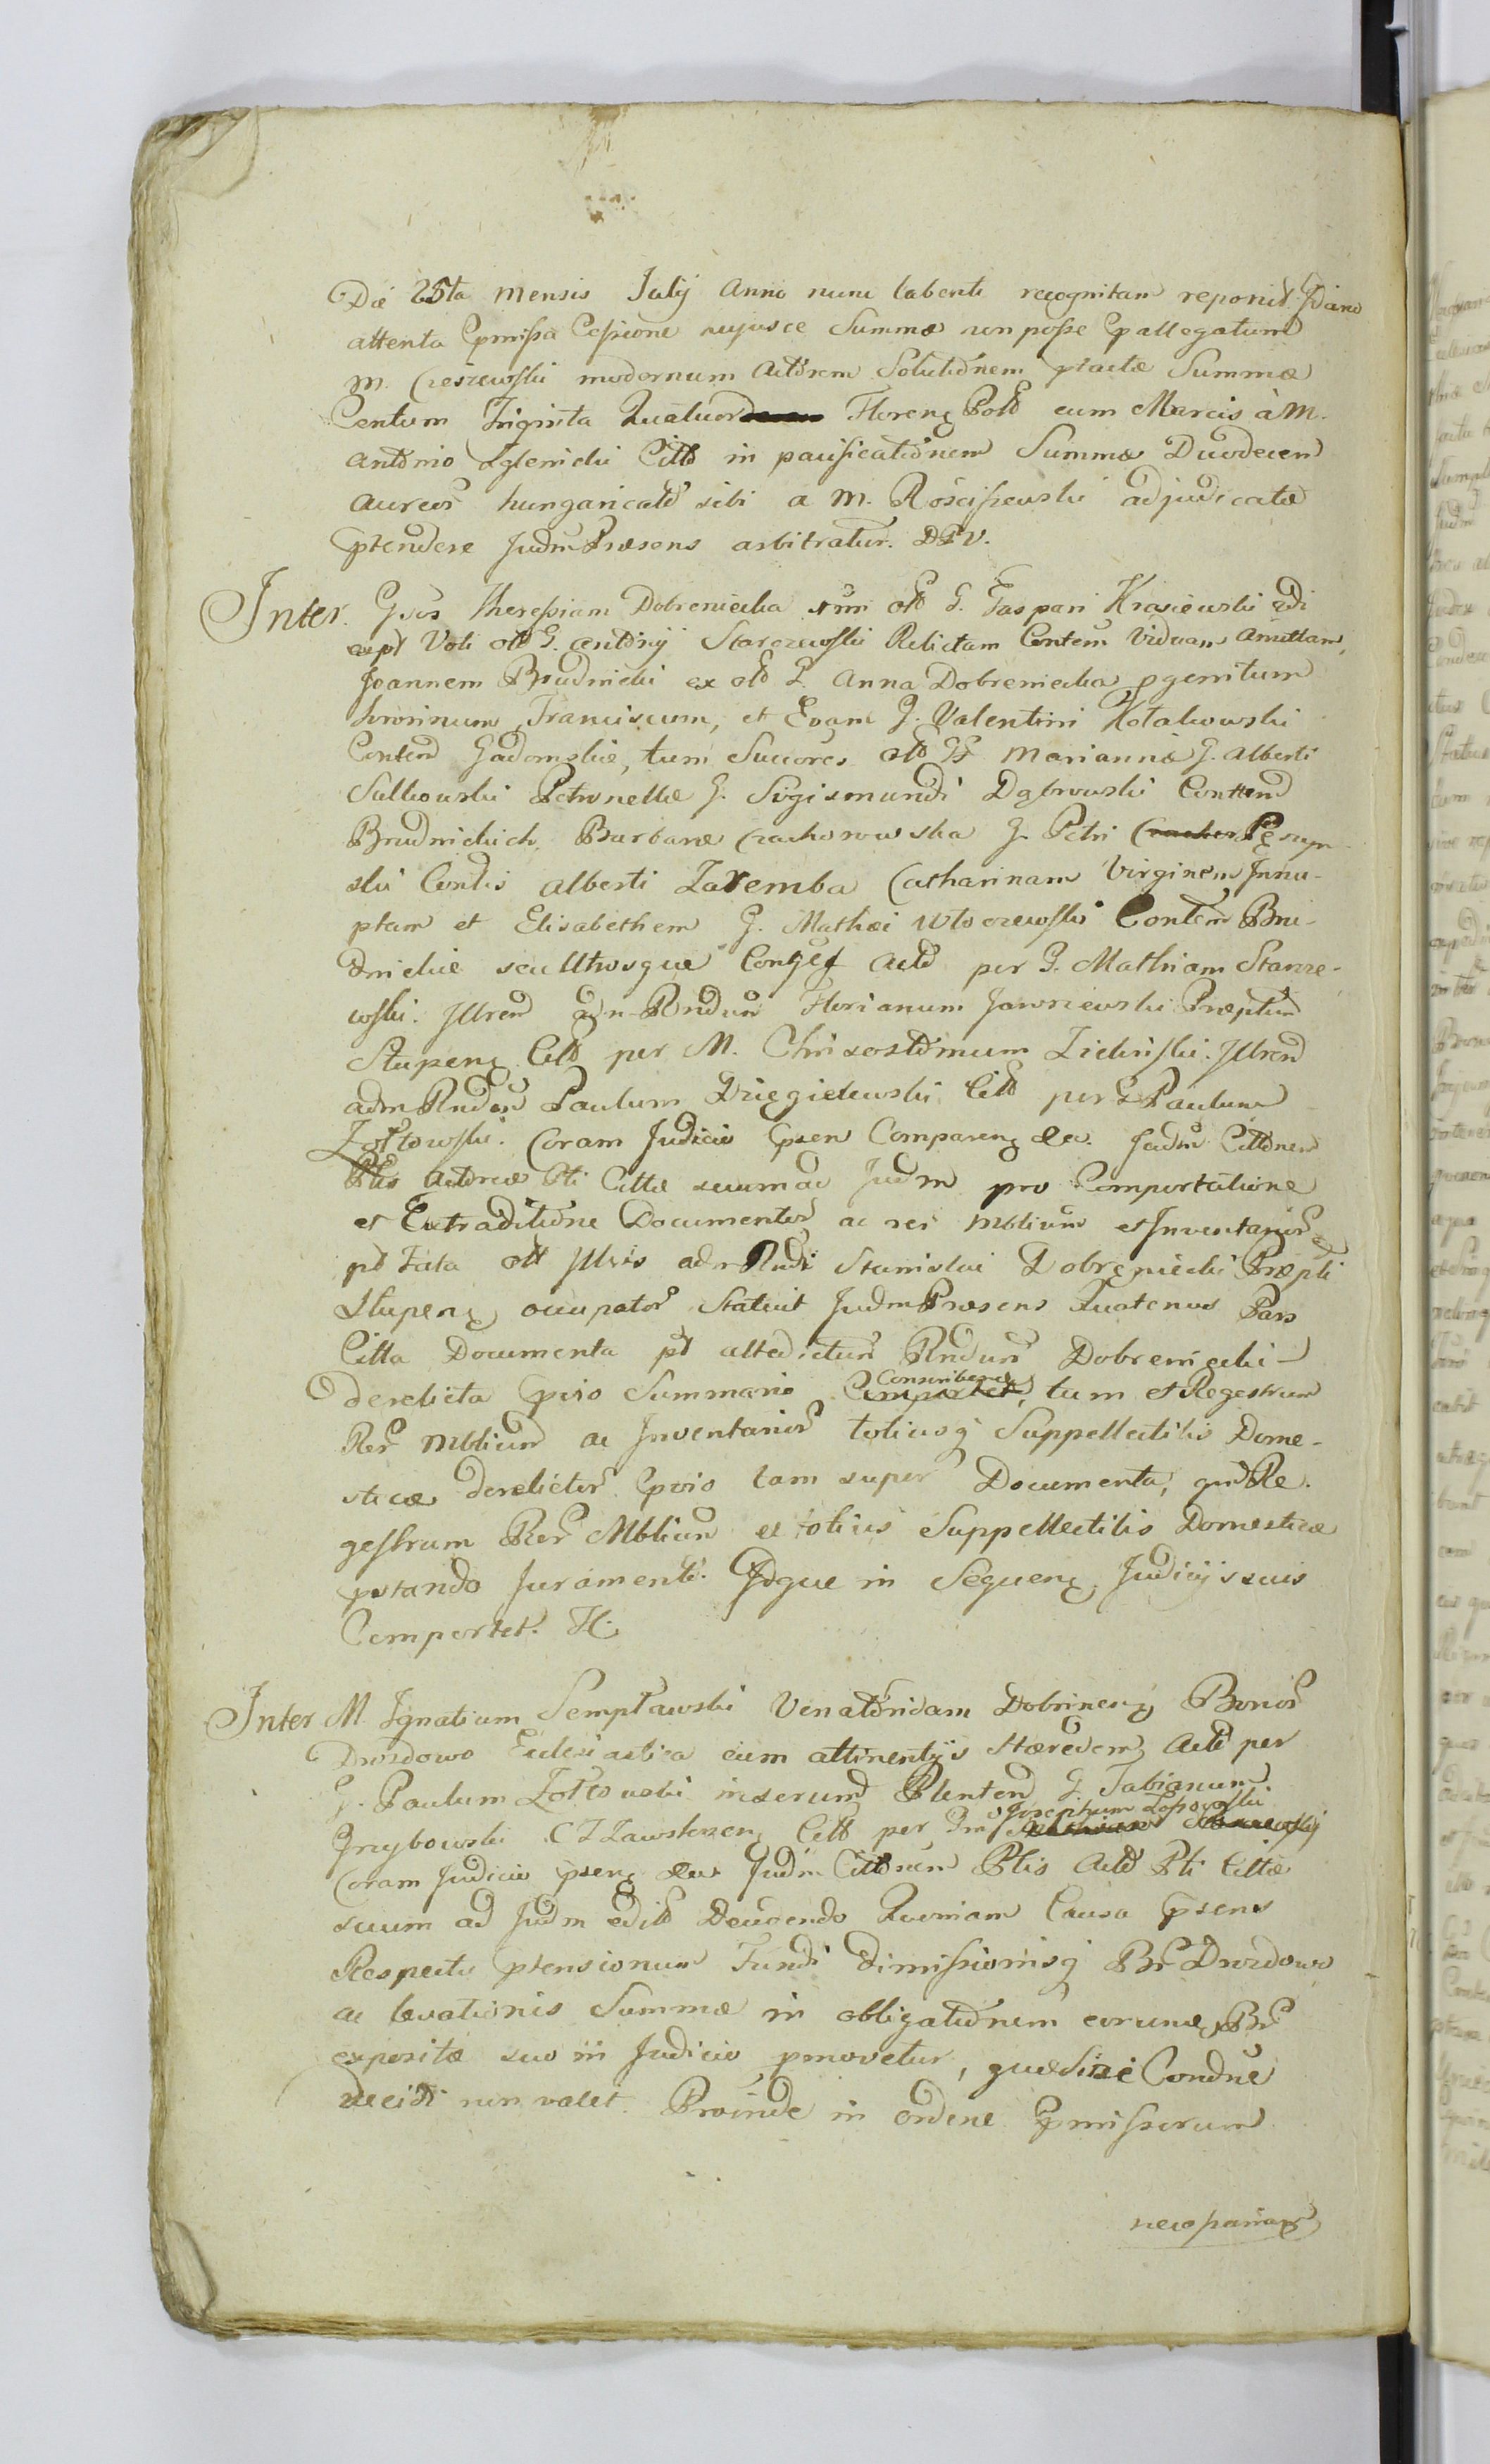 Die 25ta mensis Julij Anno nunc labenti recognitam reponit Ideao
attenta pmissa Cessione cujusce Summæ non posse pallegatum
M. Creszewski modernum Actorem Solutionem ptactæ Summæ
Centum Triginta Quatuor Floreng Pold cum Marcis à M.
Antonio Zglenicki Citto in pacificationem Summæ Duodecem
Aureor hungaricald sibi a M. Rościszewski adjudicatæ
ptendere Judm Præsens arbitratur. DPV.
Inter Gsos Theressiam Dobreniecka 1mi olb G. Gaspari Krasiewski 2di
Voti olb G. Antonij Starczewski Relictam Contem Viduam Amittam,
Joannem Brudnicki ex olb G. Anna Dobreniecka pgenitum
Franciscum, et Evam G. Valentini Kotakowski
Contem Gadomskie, tum Succores olb GG Mariannæ G. Alberti
Sulkowski Petronellæ G. Sigismundi Dąbrowski Conttem
Brudnickich, Barbaræ Czachorowska G. Petri
ski Contis Alberti Zaremba Catharinam Virginem Innu-
ptam et Elisabethem G. Mathæi Włoczewski Contem Bru-
dnickie scu Utrosque Conges Acto per G. Mathiam Starcze-
wski. Illrem adm Rndum Florianum Jawrzewski Præptum
Słupeng Citt per M. Chrisostomum Zieliński. Illrem
adm Rndum Paulum Dzięgielewski Citt per G Paulum
Żołtowski. Coram Judicio psen Compareng &ca. Judm Cittonem
Ptis Actoreæ Pti Cittæ suum ad Judm pro Comportatione
et Extraditione Documentor ac rei Mblium et Inventarior
pt Fata olt Illris adm Rndi Stanislai Dobreniecki Præpti
Słupeng occupator Statuit Judm Præsens Quatenus Pars
Citta Documenta pt altedictum Rndum Dobreniecki
derelicta pvio Summario Conscribere Comportet, tum et Regestrum
Rer Mblium ac Inventarior totiusq Suppellectilis Dome-
sticæ derelictor pvio tam super Documenta, qm Re-
gestrum Rer Mblium et totius Suppellectilis Domesticæ
pstando Juramento. Idque in Sequeng Judicijs suis
Comportet. H.
Inter M. Ignatium Sempławski Venatoridam Dobrineng Bonor
Drozdowo Ecclesiastica cum attinentijs Hæredem Acto per
G. Paulum Żołtowski inserum Plentem G. Fabianum
Grzybowski C T Zawskrzeng Citt per Gm Josephum Łossowski
Coram Judicio pseng &ca Judm Cittonem Ptis Acto Pti Cittæ
suum ad Judm edito Deducendo Quoniam Causa psens
Respectu ptensionum Fundi dimissionisq Br Drozdowo
ac levationis Summæ in obligationem eorumq Br
expositæ suo in Judicio pmovetur, quæ sine Condne
decidi non valet. Proinde in ordene pmissorum